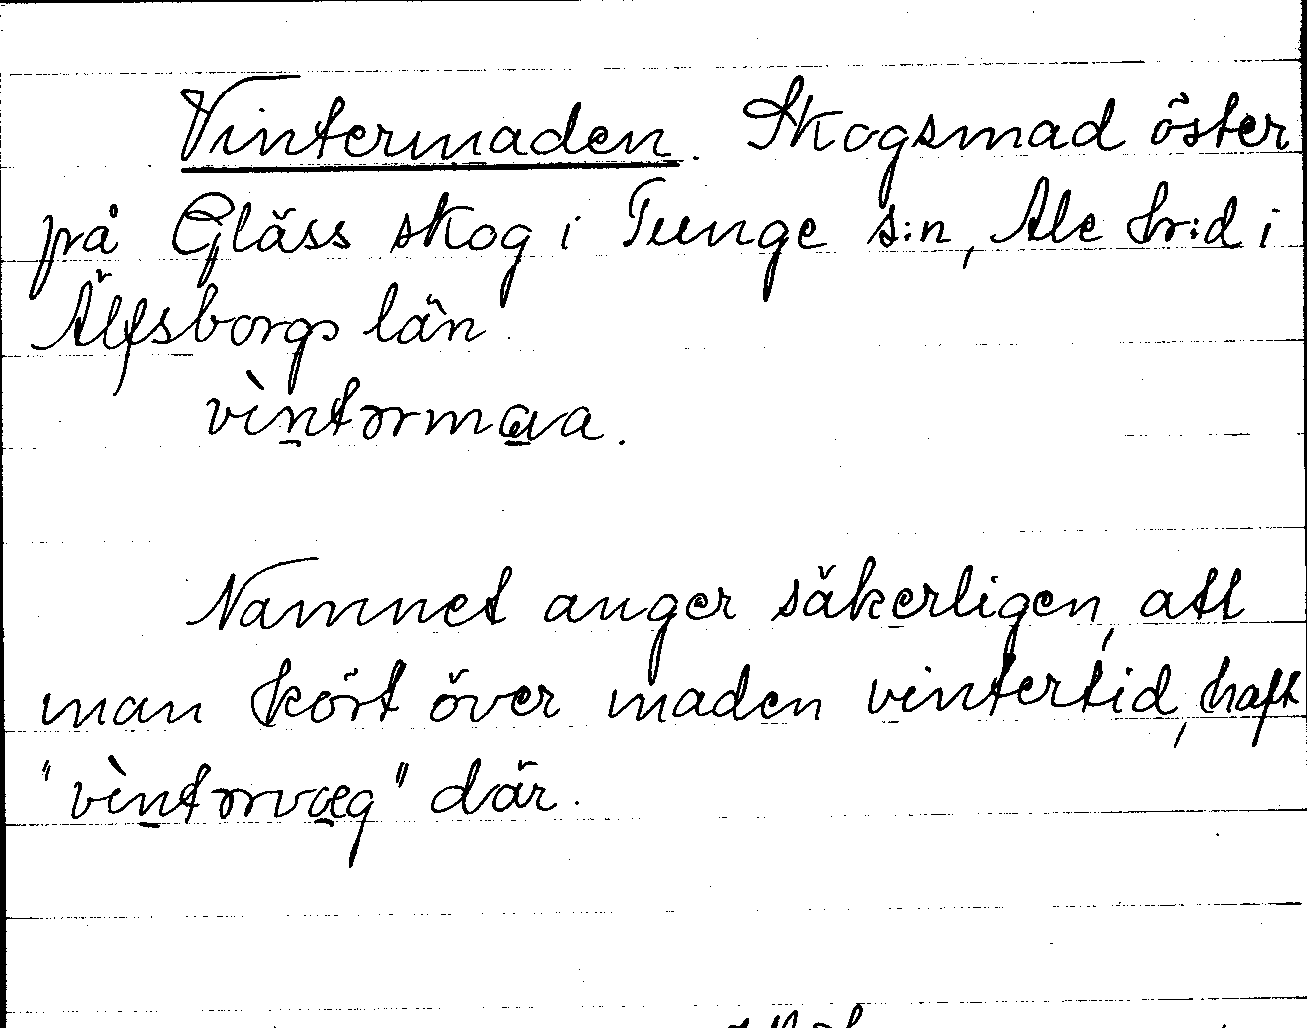 Vintermaden. Skogsmad öster
på Gläss skog i Tunge s:n, Ale hr:d i
Älfsborgs län.
vìntərmava.
Namnet anger säkerligen, att
man kört över maden vintertid, haft
"vìntərvæg" där.